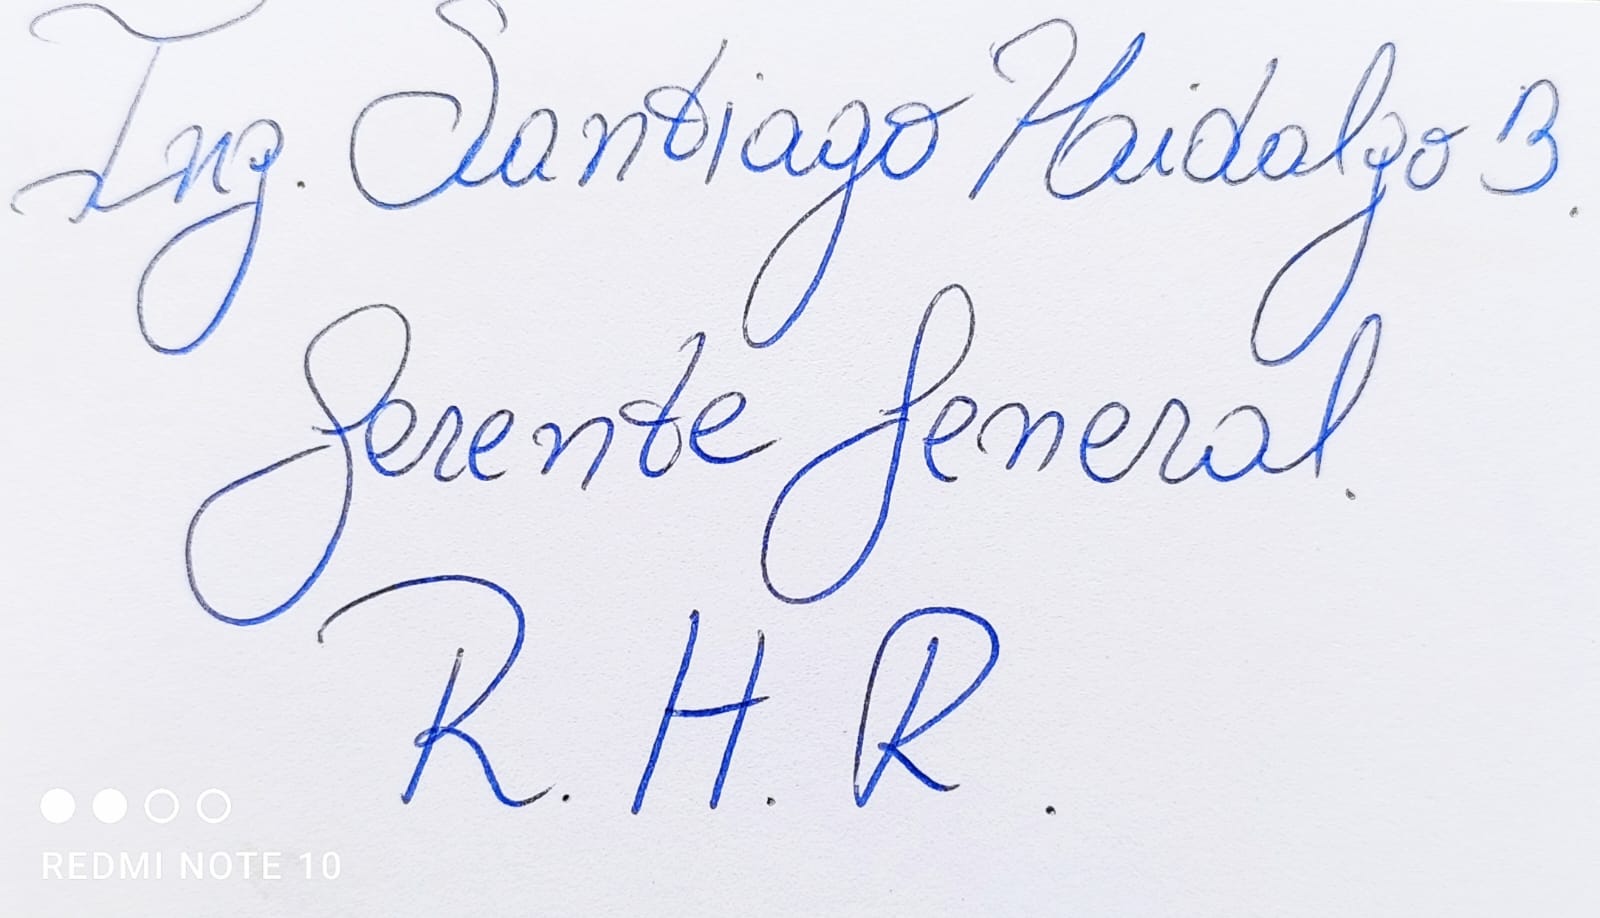 Ing. Santiago Haidalgo B.
Gerente General.
R. H. R.
REDMI NOTE 10